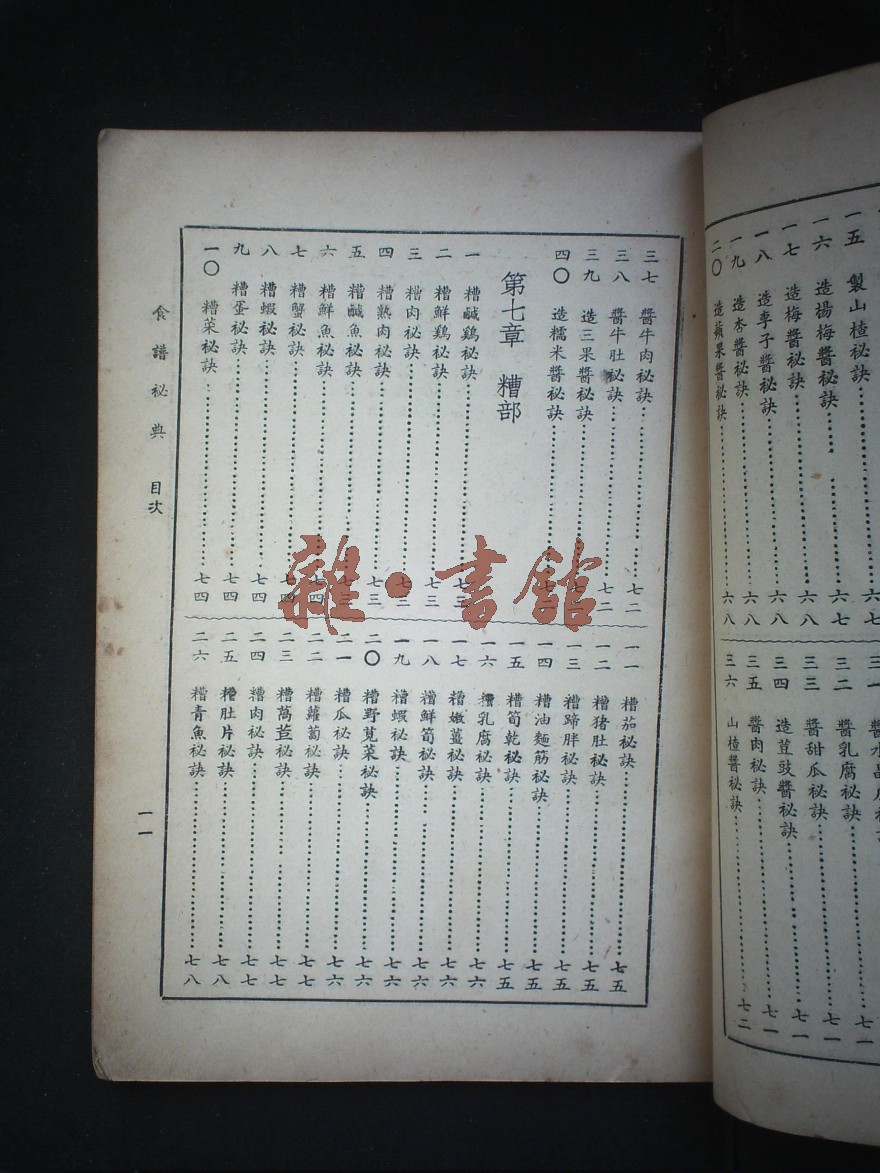 一五 製山楂秘訣 六七
一六 造楊梅醬秘訣 六七
一七 造梅醬秘訣 六八
一八 造李子醬秘訣 六八
一九 造杏醬秘訣 六八
二〇 造蘋果醬秘訣 六八
三二 醬乳腐秘訣 七一
三三 醬甜瓜秘訣 七一
三四 造荳豉醬秘訣 七一
三五 醬肉秘訣 七一
三六 山楂醬秘訣 七二
三七 醬牛肉秘訣 七二
三八 醬牛肚秘訣 七二
三九 造三果醬秘訣
四〇 造糯米醬秘訣
第七章 糟部
一 糟鹹鷄秘訣 七三
二 糟鮮鷄秘訣 七三
三 糟肉秘訣 七三
四 糟熟肉秘訣 七三
五 糟鹹魚秘訣
六 糟鮮魚秘訣 七四
七 糟蟹秘訣 七四
八 糟蝦秘訣 七四
九 糟蛋秘訣 七四
一〇 糟菜秘訣 七四
一一 糟茄秘訣 七五
一二 糟猪肚秘訣 七五
一三 糟蹄胖秘訣 七五
一四 糟油麵筋秘訣 七五
一五 糟筍乾秘訣 七五
一六 糟乳腐秘訣 七六
一七 糟嫩薑秘訣 七六
一八 糟鮮筍秘訣 七六
一九 糟蝦秘訣 七六
二〇 糟野莧菜秘訣 七六
二一 糟瓜秘訣 七六
二二 糟蘿蔔秘訣 七七
二三 糟萵苣秘訣 七七
二四 糟肉秘訣 七七
二五 糟肚片秘訣 七八
二六 糟青魚秘訣 七八
食譜秘典 目次
一一
雜·書館